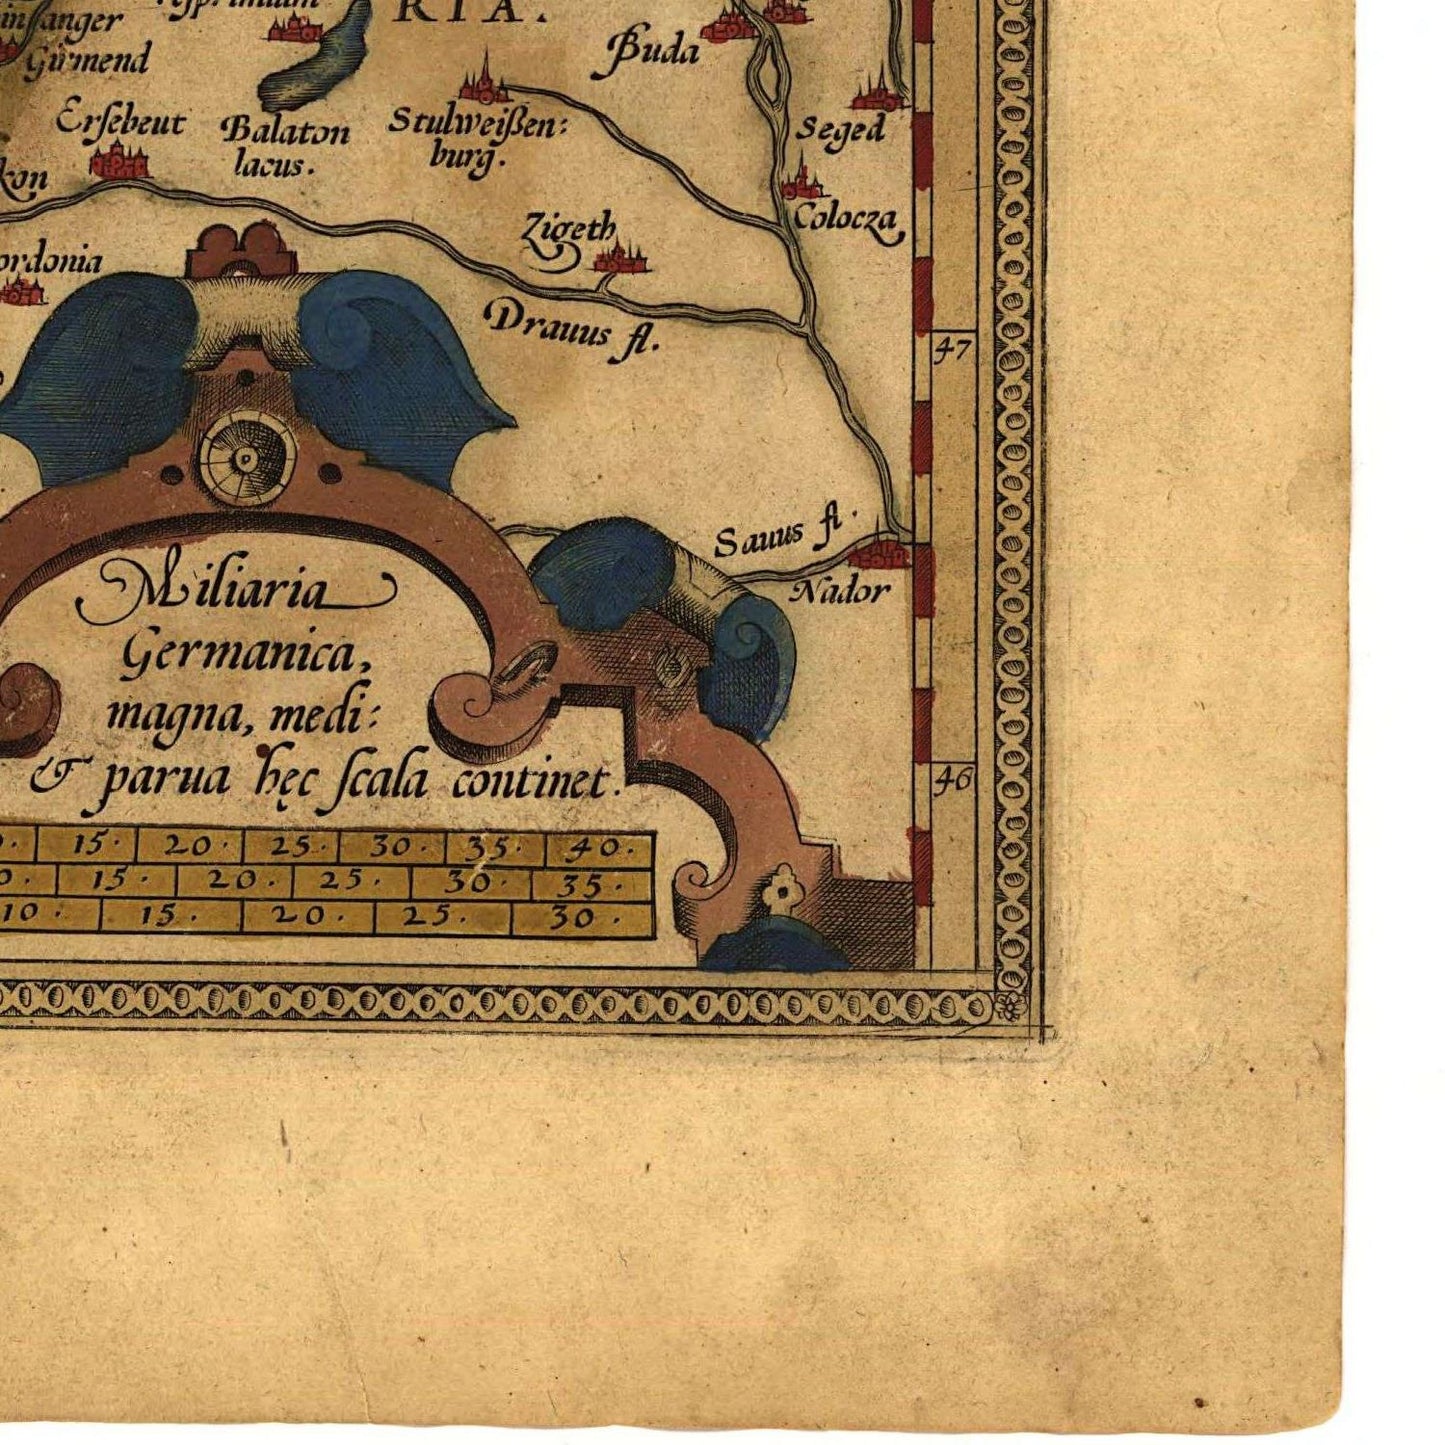 RIA.
Buda
Girmend
Ersebeut
Balaton
lacus.
Stulweißen:
burg.
Seged
Colocza,
Zigeth
Drauus fl.
47
Sauus fl.
Nador
Miliaria
Germanica,
magna, medi:
& parua hęc scala continet.
46
15. 20. 25. 30. 35. 40.
15. 20. 25. 30. 35.
10. 15. 20. 25. 30.